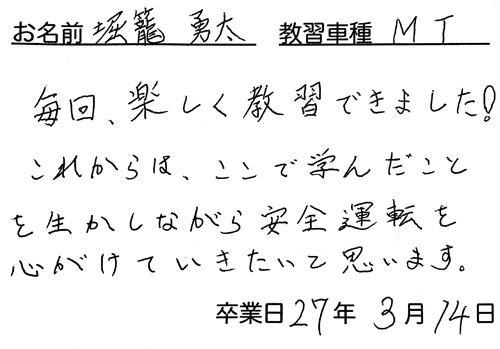 お名前 堀籠 勇太 教習車種 MT
毎回、楽しく教習できました!
これからは、ここで学んだこと
を生かしながら安全運転を
心がけていきたいと思います。
卒業日27年 3月14日